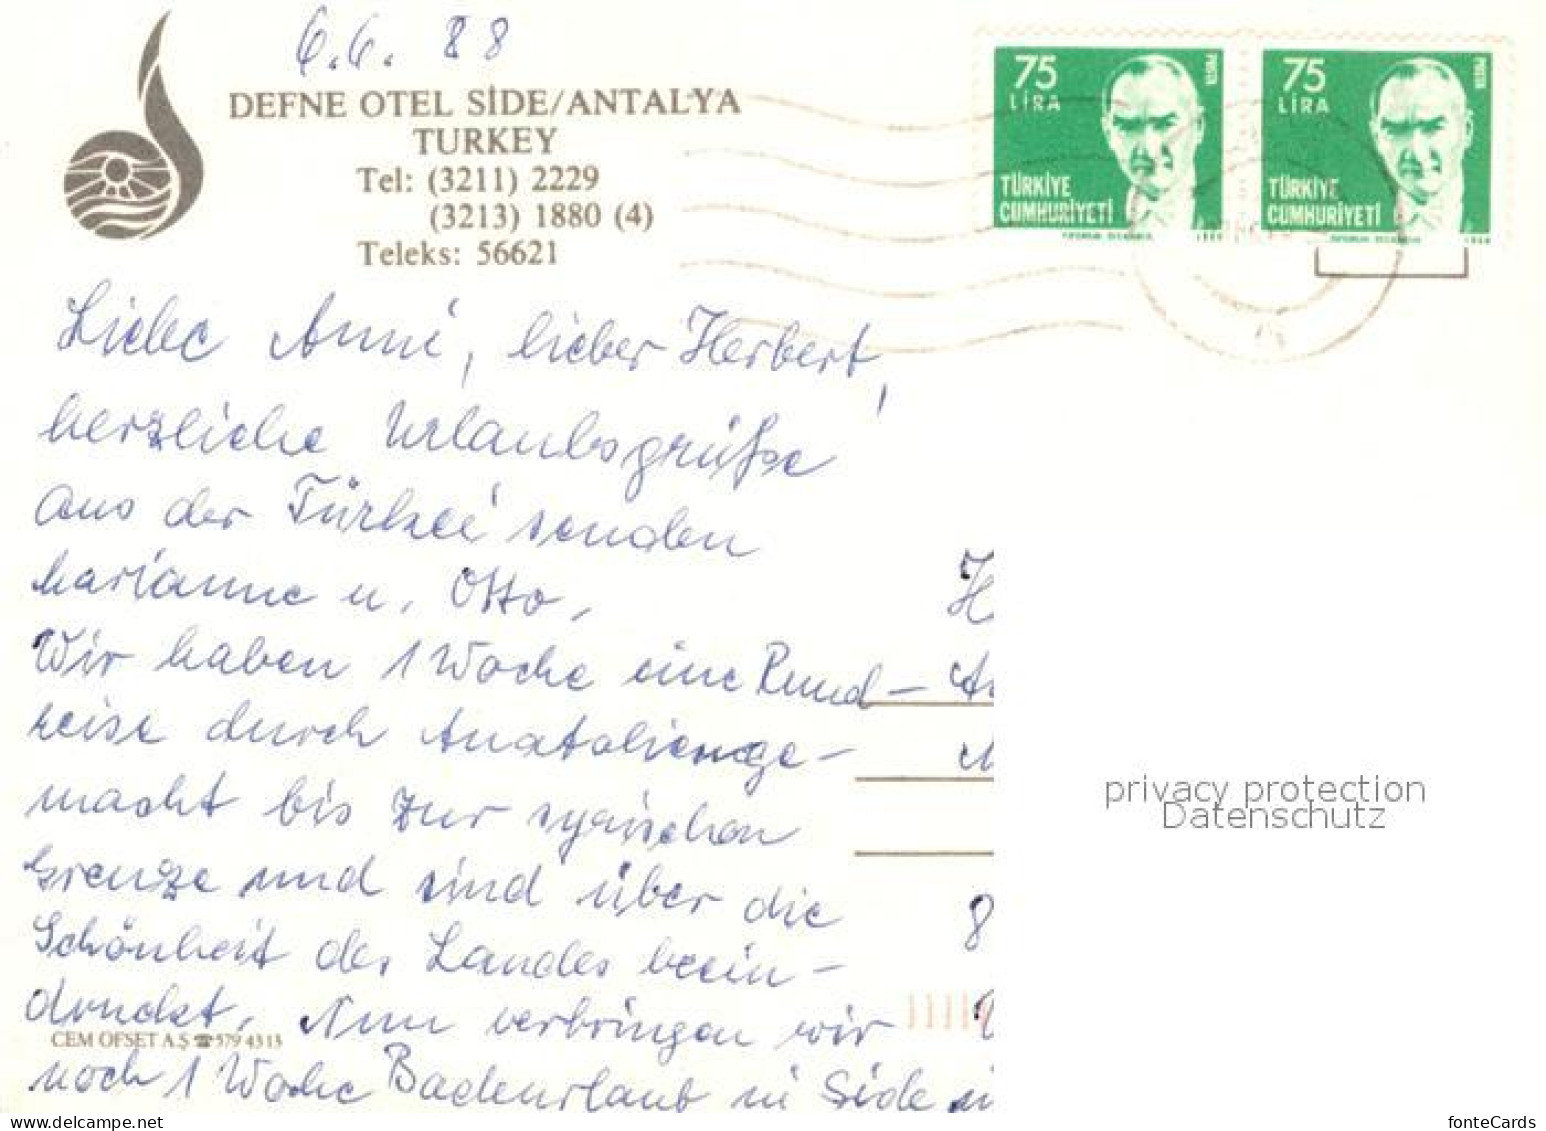 6.6. 88
DEFNE OTEL SİDE/ANTALYA
TURKEY
Tel: (3211) 2229
(3213) 1880 (4)
Teleks: 56621
75
LİRA
POSTA
TÜRKİYE
CUMHURİYETİ
75
LİRA
POSTA
TÜRKİYE
CUMHURİYETİ
Liebe Anni, lieber Herbert,
herzliche Urlaubsgrüße
aus der Türkei senden
Marianne u. Otto.
Wir haben 1 Woche eine Rund-
reise durch Anatolien ge-
macht bis zur syrischen
Grenze und sind über die
Schönheit des Landes beein-
druckt. Nun verbringen wir
noch 1 Woche Badeurlaub in Side
CEM OFSET A.Ş ☎ 579 43 13
H
8
privacy protection
Datenschutz
fonteCards